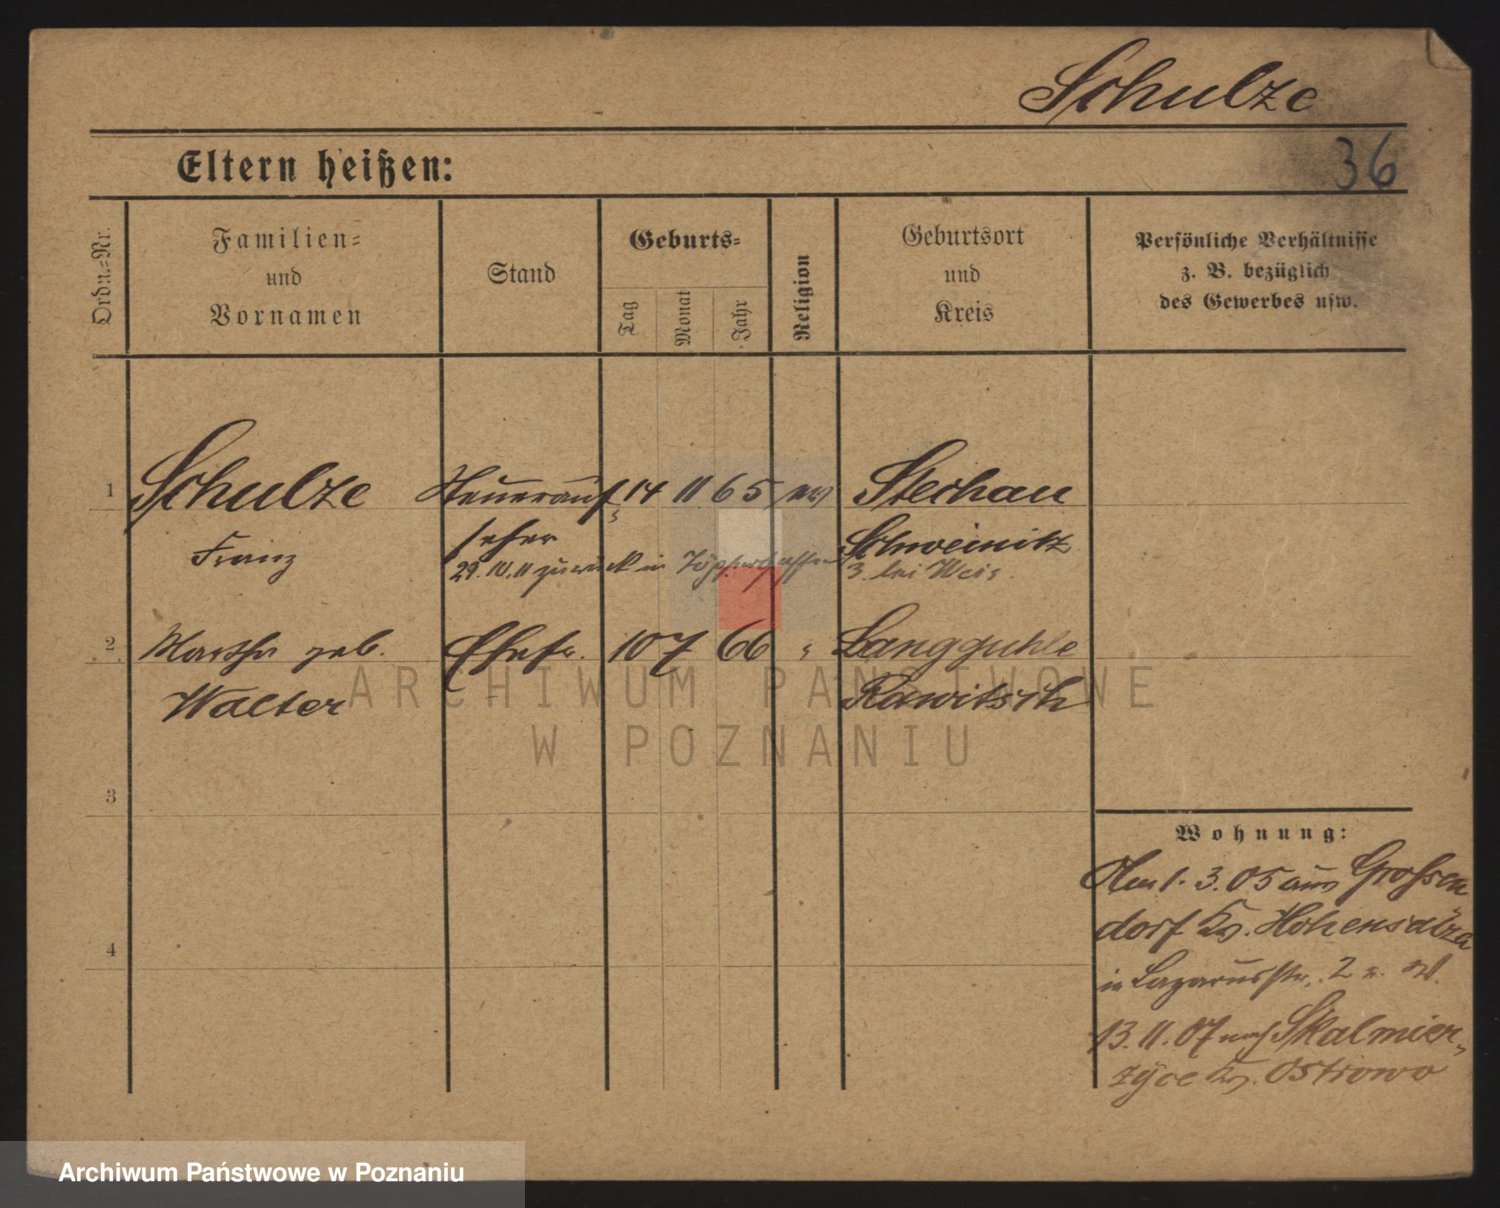 Schulze
36
Eltern heißen:
Ordn.-Nr.
Familien-
und
Vornamen
Stand
Geburts-
Tag
Monat
Jahr
Religion
Geburtsort
und
Kreis
Persönliche Verhältnisse
z. B. bezüglich
des Gewerbes usw.
1 Schulze Steuerauf= 14 11 65 ev Stechau
Franz seher Schweinitz
29.10.11 zurück in 3 bei Weis
2 Martha geb. Ehefr. 10 7 66 " Langguhle
Walter Rawitsch
3
4
Wohnung:
Am 1. 3. 05 aus Grossen
dorf Kr. Hohensalza
in Lazarusstr. 2 z.
13.11.07 nach Skalmier-
zyce Kr. Ostrowo
ARCHIWUM PAŃSTWOWE
W POZNANIU
Archiwum Państwowe w Poznaniu